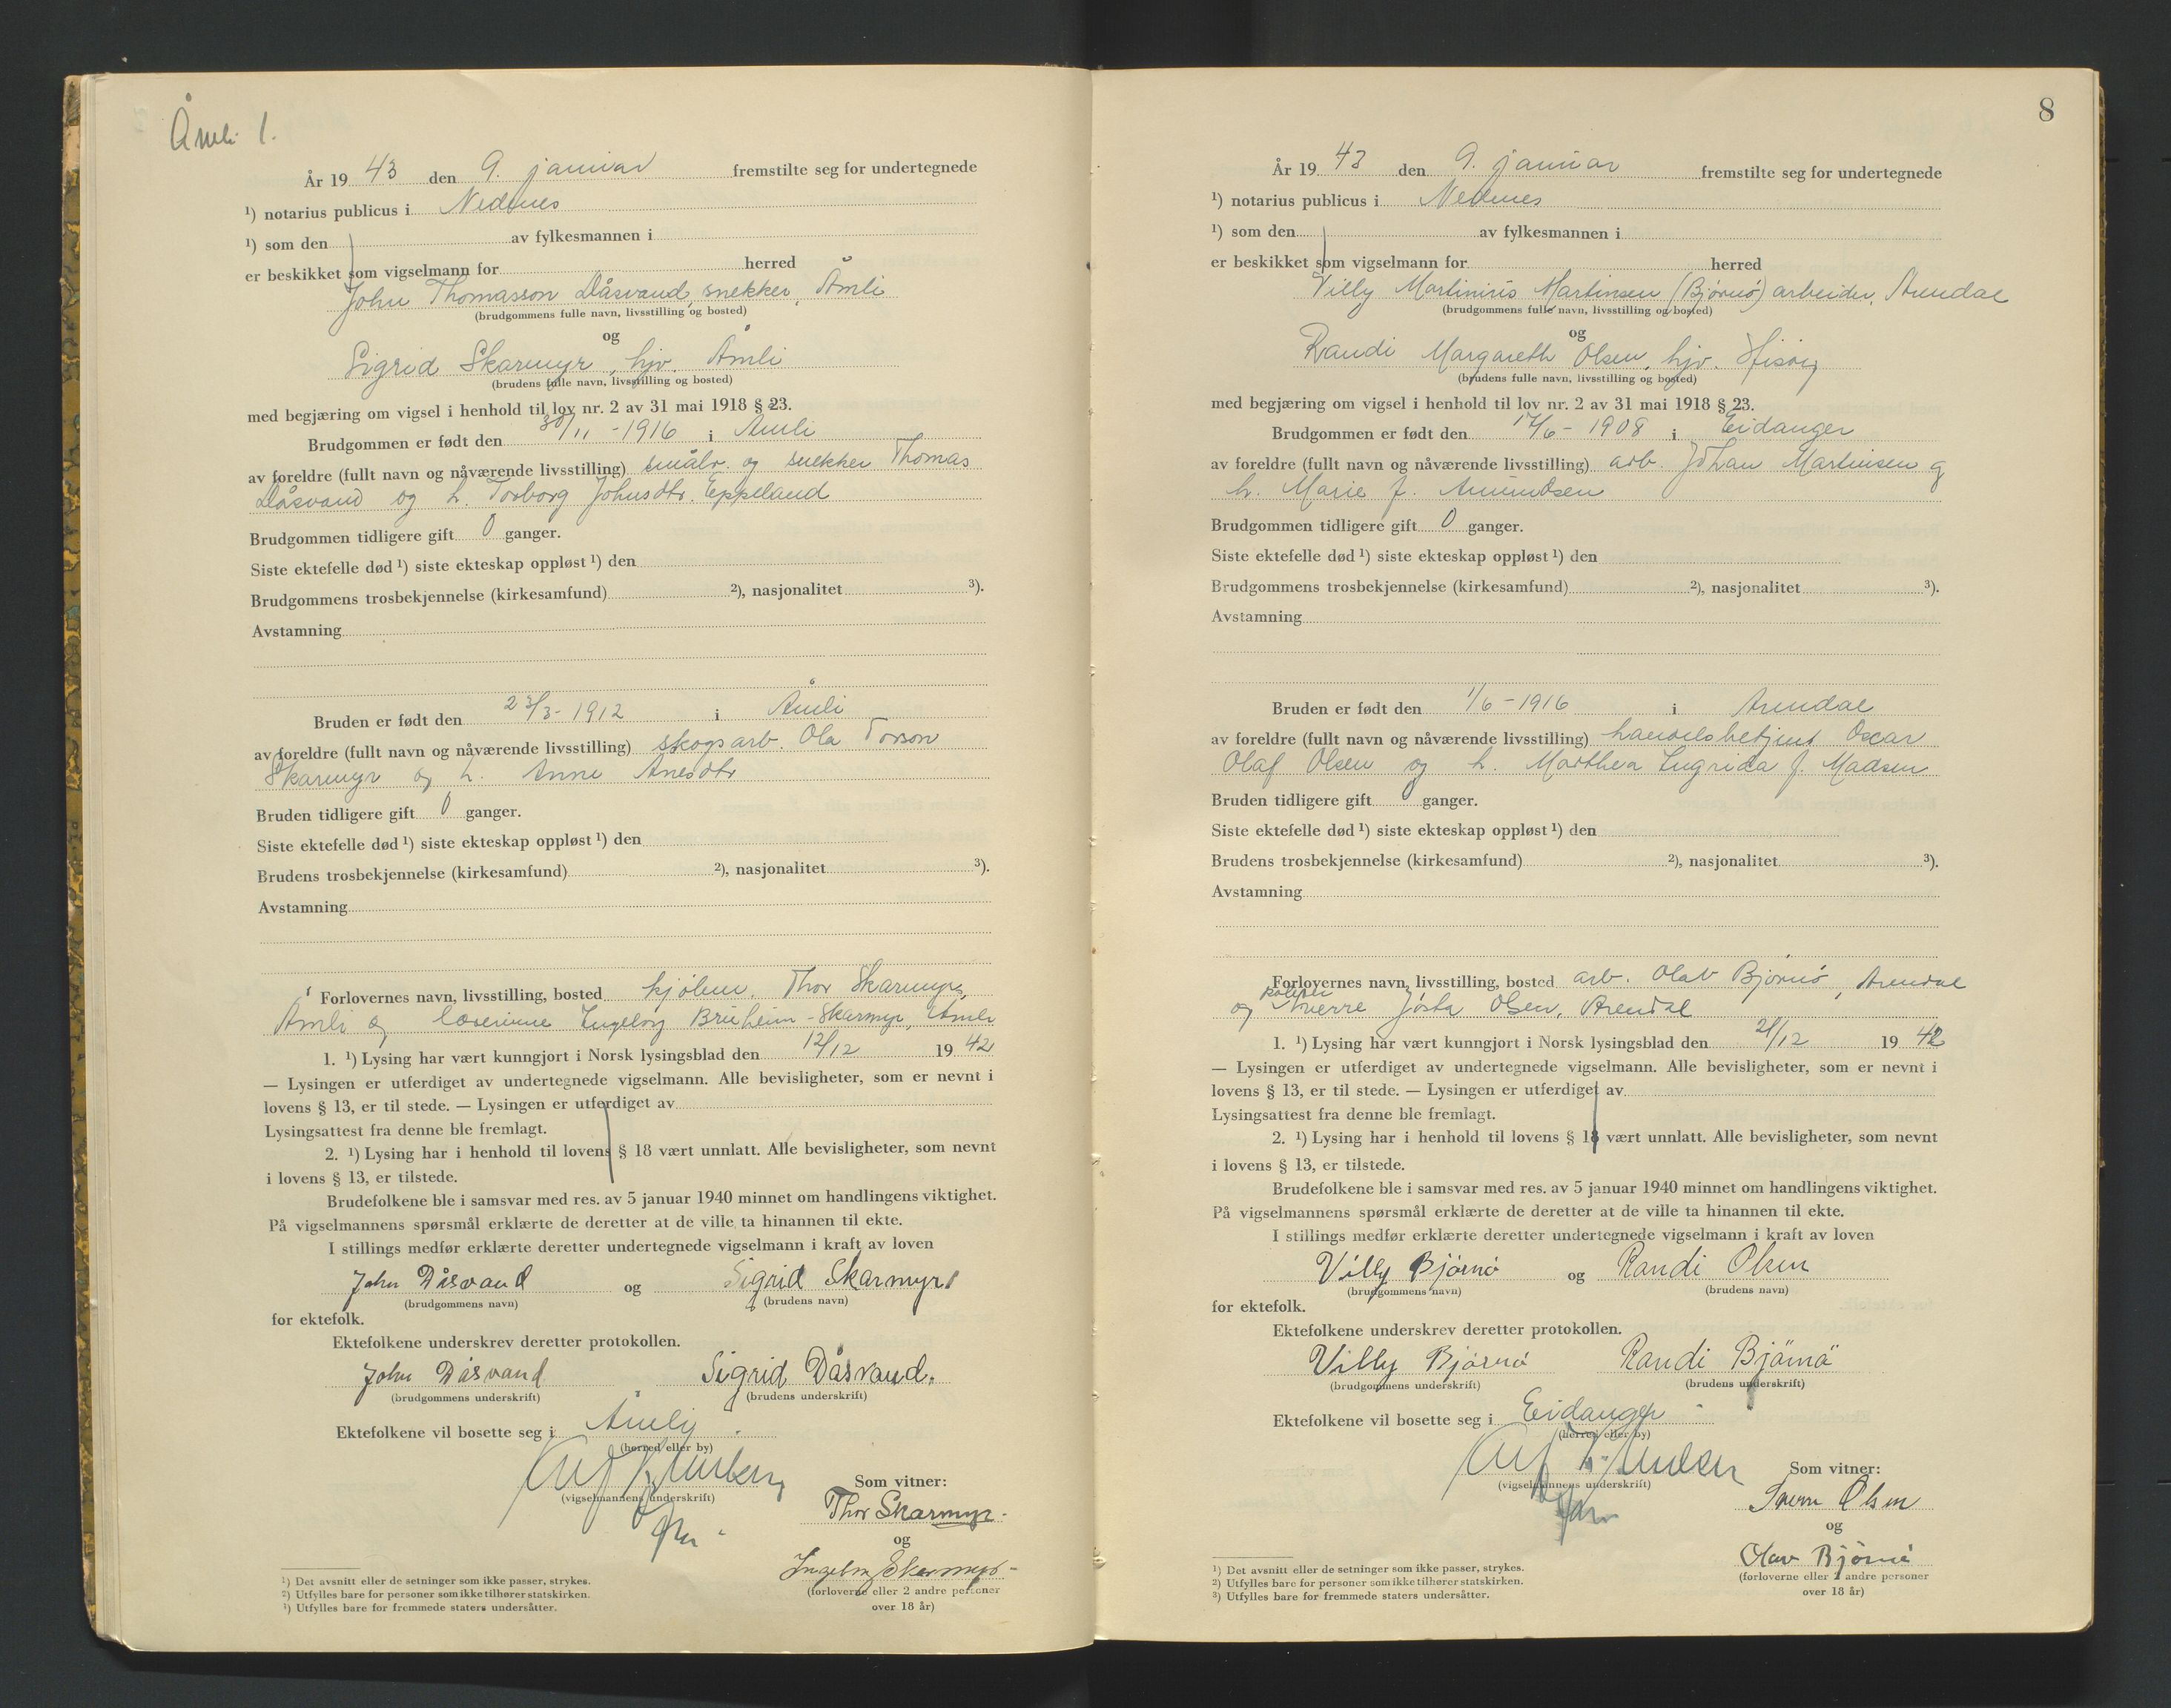 Åmli 1.
År 1943 den 9. januar fremstilte seg for undertegnede
¹) notarius publicus i Nedenes
¹) som den av fylkesmannen i
er beskikket som vigselmann for herred
John Thomasson Dåsvand, snekker, Åmli
(brudgommens fulle navn, livsstilling og bosted)
og
Sigrid Skarmyr, hjv. Åmli
(brudens fulle navn, livsstilling og bosted)
med begjæring om vigsel i henhold til lov nr. 2 av 31 mai 1918 § 23.
Brudgommen er født den 30/11 - 1916 i Åmli
av foreldre (fullt navn og nåværende livsstilling) småbr. og snekker Thomas
Dåsvand og h. Torborg Johnsdtr. Eppeland
Brudgommen tidligere gift 0 ganger.
Siste ektefelle død ¹) siste ekteskap oppløst ¹) den
Brudgommens trosbekjennelse (kirkesamfund) ²), nasjonalitet ³).
Avstamning
Bruden er født den 23/3 - 1912 i Åmli
av foreldre (fullt navn og nåværende livsstilling) skogsarb. Ola Torson
Skarmyr og h. Anne Anesdtr
Bruden tidligere gift 0 ganger.
Siste ektefelle død ¹) siste ekteskap oppløst ¹) den
Brudens trosbekjennelse (kirkesamfund) ²), nasjonalitet ³).
Avstamning
Forlovernes navn, livsstilling, bosted Thor Skarmyr,
Åmli og lærerinne Ingeborg Bruheim - Skarmyr, Åmli
1. ¹) Lysing har vært kunngjort i Norsk lysingsblad den 12/12 1942
— Lysingen er utferdiget av undertegnede vigselmann. Alle bevisligheter, som er nevnt i
lovens § 13, er til stede. — Lysingen er utferdiget av
Lysingsattest fra denne ble fremlagt.
2. ¹) Lysing har i henhold til lovens § 18 vært unnlatt. Alle bevisligheter, som nevnt
i lovens § 13, er tilstede.
Brudefolkene ble i samsvar med res. av 5 januar 1940 minnet om handlingens viktighet.
På vigselmannens spørsmål erklærte de deretter at de ville ta hinannen til ekte.
I stillings medfør erklærte deretter undertegnede vigselmann i kraft av loven
John Dåsvand og Sigrid Skarmyr
(brudgommens navn) (brudens navn)
for ektefolk.
Ektefolkene underskrev deretter protokollen.
John Dåsvand Sigrid Dåsvand.
(brudgommens underskrift) (brudens underskrift)
Ektefolkene vil bosette seg i Åmli
(herred eller by)
Som vitner:
(vigselmannens underskrift)
Thor Skarmyr.
og
Ingeborg Skarmyr
(forloverne eller 2 andre personer
over 18 år)
¹) Det avsnitt eller de setninger som ikke passer, strykes.
²) Utfylles bare for personer som ikke tilhører statskirken.
³) Utfylles bare for fremmede staters undersåtter.
8
År 1943 den 9. januar fremstilte seg for undertegnede
¹) notarius publicus i Nedenes
¹) som den av fylkesmannen i
er beskikket som vigselmann for herred
Villy Martinius Martinsen (Bjørnø) arbeider, Arendal
(brudgommens fulle navn, livsstilling og bosted)
og
Randi Margareth Olsen, hjv. Hisøy
(brudens fulle navn, livsstilling og bosted)
med begjæring om vigsel i henhold til lov nr. 2 av 31 mai 1918 § 23.
Brudgommen er født den 17/6 - 1908 i Eidanger
av foreldre (fullt navn og nåværende livsstilling) arb. Johan Martinsen og
h. Marie f. Amundsen
Brudgommen tidligere gift 0 ganger.
Siste ektefelle død ¹) siste ekteskap oppløst ¹) den
Brudgommens trosbekjennelse (kirkesamfund) ²), nasjonalitet ³).
Avstamning
Bruden er født den 1/6 - 1916 i Arendal
av foreldre (fullt navn og nåværende livsstilling) handelsbetjent Oscar
Olaf Olsen og h. Marthea Ingrida f. Madsen
Bruden tidligere gift 0 ganger.
Siste ektefelle død ¹) siste ekteskap oppløst ¹) den
Brudens trosbekjennelse (kirkesamfund) ²), nasjonalitet ³).
Avstamning
Forlovernes navn, livsstilling, bosted arb. Olav Bjørnø, Arendal
og Sverre Jøsta Olsen, Arendal
1. ¹) Lysing har vært kunngjort i Norsk lysingsblad den 21/12 1942
— Lysingen er utferdiget av undertegnede vigselmann. Alle bevisligheter, som er nevnt i
lovens § 13, er til stede. — Lysingen er utferdiget av
Lysingsattest fra denne ble fremlagt.
2. ¹) Lysing har i henhold til lovens § 18 vært unnlatt. Alle bevisligheter, som nevnt
i lovens § 13, er tilstede.
Brudefolkene ble i samsvar med res. av 5 januar 1940 minnet om handlingens viktighet.
På vigselmannens spørsmål erklærte de deretter at de ville ta hinannen til ekte.
I stillings medfør erklærte deretter undertegnede vigselmann i kraft av loven
Villy Bjørnø og Randi Olsen
(brudgommens navn) (brudens navn)
for ektefolk.
Ektefolkene underskrev deretter protokollen.
Villy Bjørnø Randi Bjørnø
(brudgommens underskrift) (brudens underskrift)
Ektefolkene vil bosette seg i Eidanger
(herred eller by)
Som vitner:
(vigselmannens underskrift)
Sverre Olsen
og
Olav Bjørnø
(forloverne eller 2 andre personer
over 18 år)
¹) Det avsnitt eller de setninger som ikke passer, strykes.
²) Utfylles bare for personer som ikke tilhører statskirken.
³) Utfylles bare for fremmede staters undersåtter.